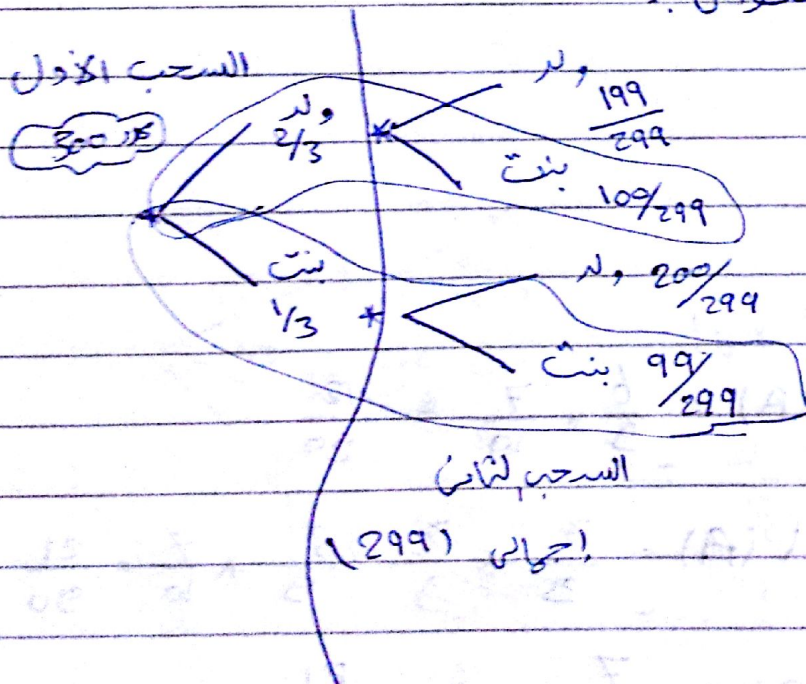 السحب الأول
300
ولد
2/3
بنت
1/3
ولد
199/299
بنت
100/299
ولد 200/299
بنت 99/299
السحب الثاني
إجمالي (299)